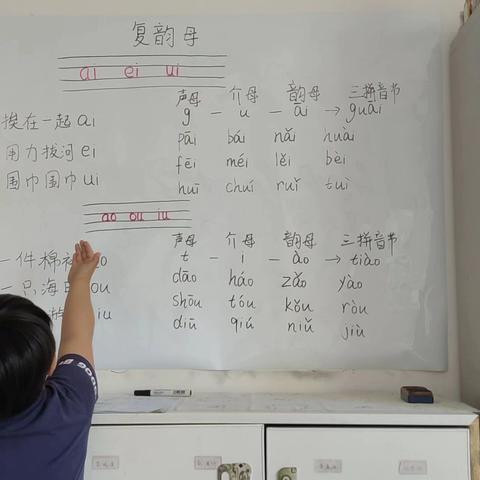 复韵母
ai ei ui
挨在一起ai
用力拔河ei
围巾围巾ui
声母 介母 韵母 三拼音节
g — u — āi → guāi
pāi bái nǎi huài
fēi méi lěi bèi
huī chuí ruǐ tuì
ao ou iu
一件棉袄ao
一只海ou
iu
声母 介母 韵母 三拼音节
t — i — ào → tiào
dāo háo zǎo yào
shōu tóu kǒu ròu
diū qiú niǔ jiù